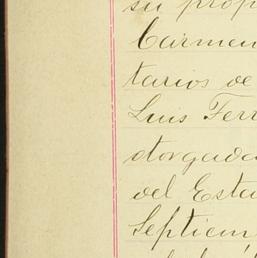 su prop
Carmen
tarios de
Luis Ferr
otorgada
del Esta
Septiem